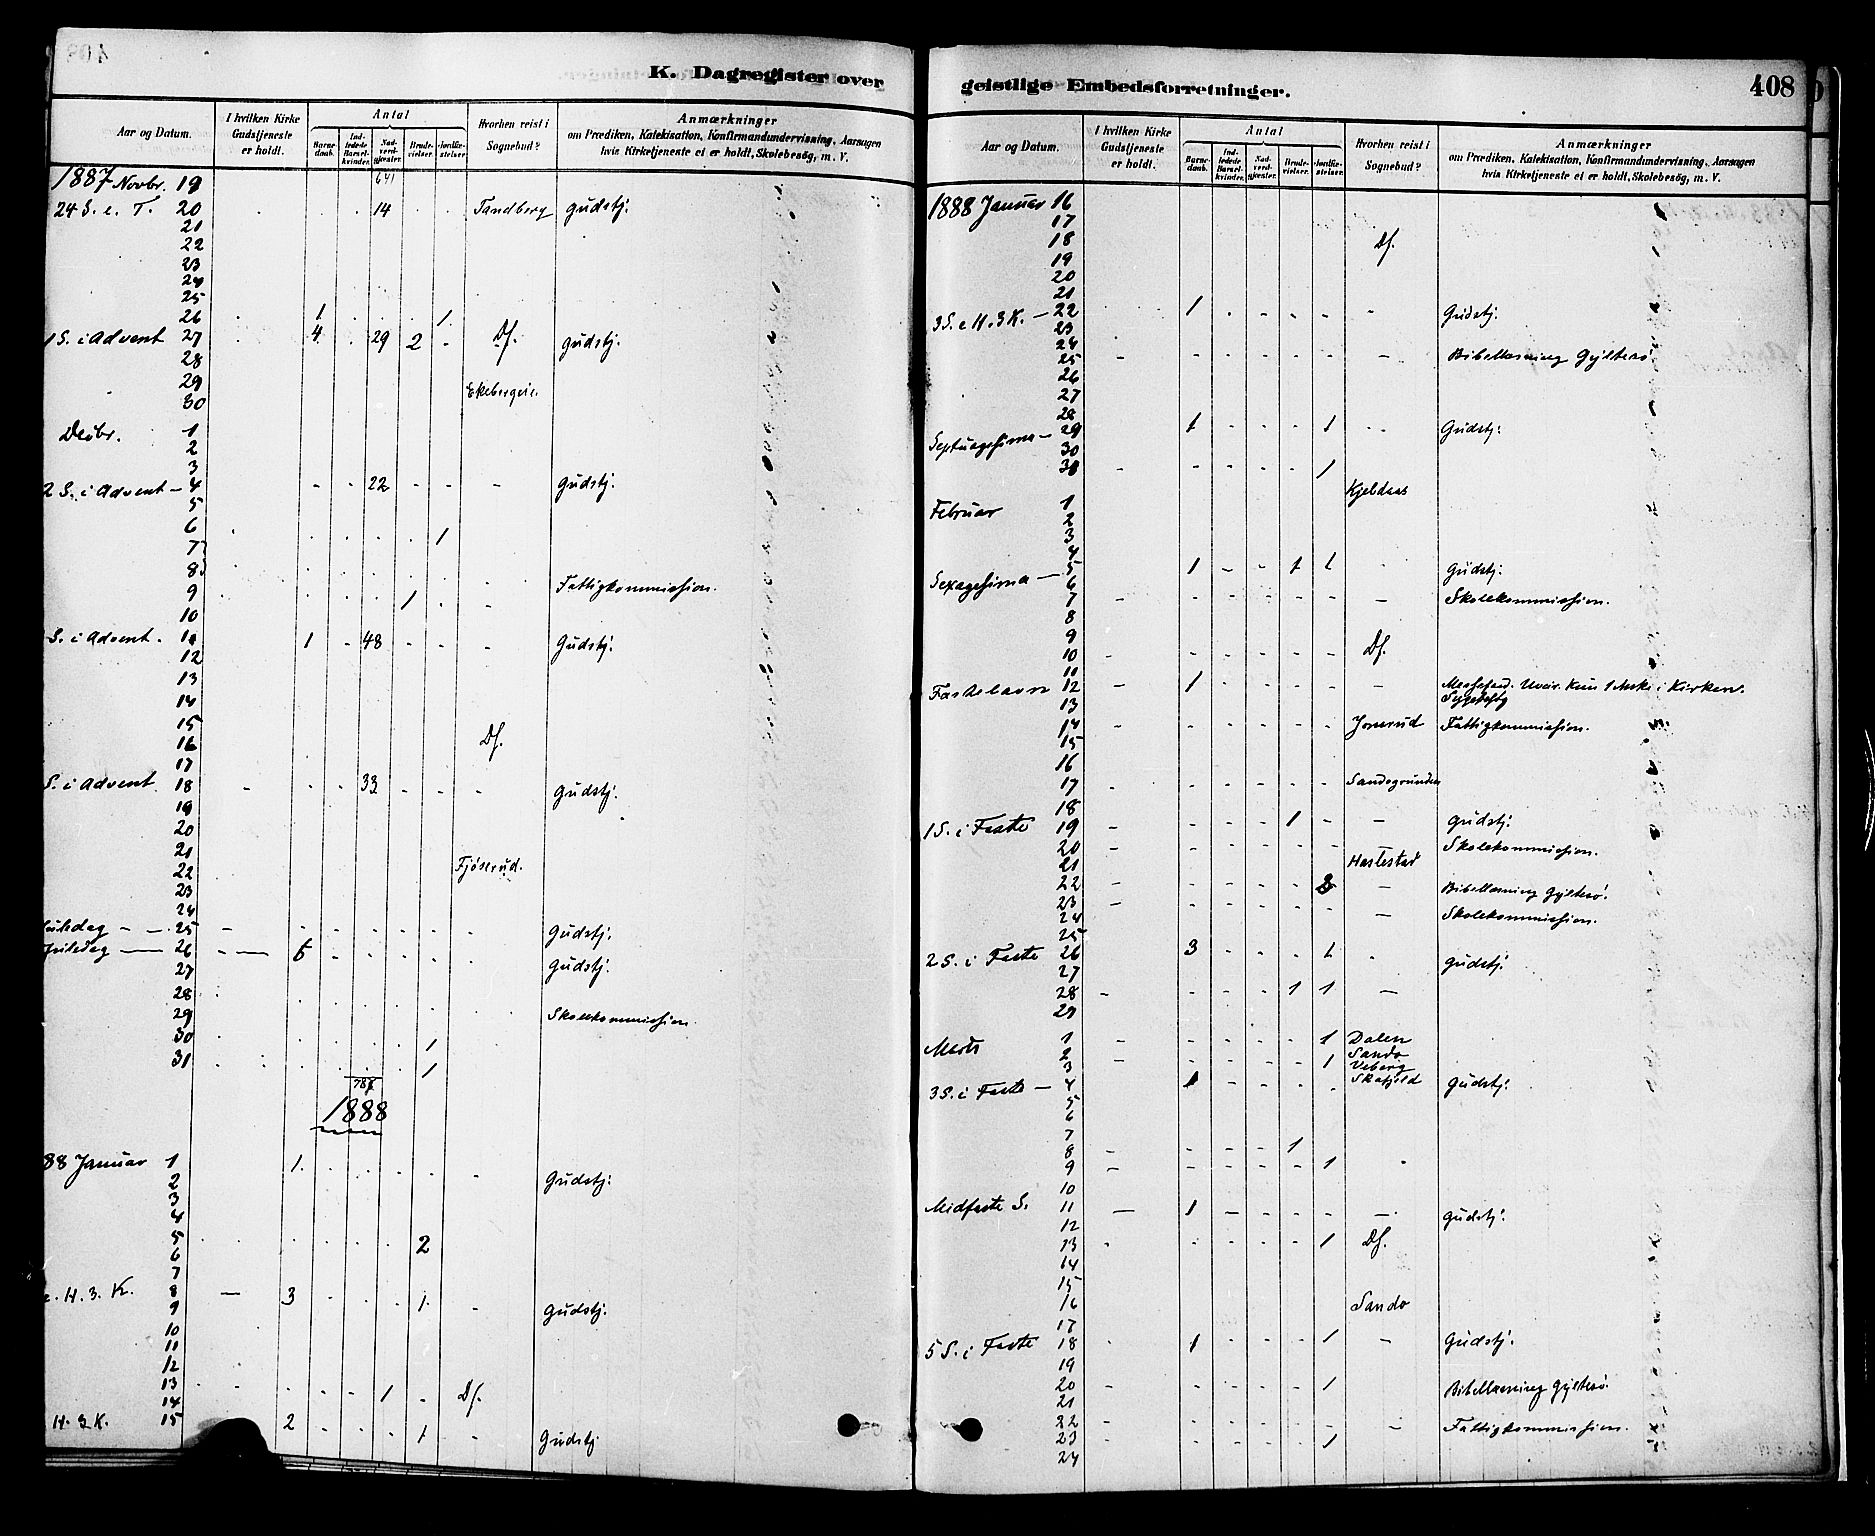 K. Dagregister over
Aar og Datum. I hvilken Kirke Gudstjeneste er holdt. Antal Barnedaab. Indledede Barselkvinder. Nadverdgjester. Brudevielser. Jordfæstelser. Hvorhen reist i Sognebud? Anmærkninger om Prædiken, Katekisation, Konfirmandundervisning, Aarsagen hvis Kirketjeneste ei er holdt, Skolebesög, m. V.
1887 Novbr. 19 641
24 S. e. T. 20 14 Tandberg Gudstj.
21
22
23
24
25
26 1 1
1 S. i Advent 27 4 29 2 Df. Gudstj.
28
29 Ekebergeie.
30
Decbr. 1
2
3
2 S. i Advent - 4 22 Gudstj.
5
6 1
7
8 Fattigkommission.
9 1
10
S. i Advent. 11 1 48 Gudstj.
12
13
14
15 Df.
16
17
S. i Advent 18 33 Gudstj.
19
20
21 Fjöserud.
22
23
24
Juledag 25 Gudstj.
Juledag 26 5 Gudstj.
27
28
29 Skolekommission.
30 1
31 1
787
1888
88 Januar 1 1 Gudstj.
2
3
4
5 2
6
7
e. H. 3. K. 8 3 1 Gudstj.
9
10
11
12
13 1 Df.
14
H. 3 K. 15 2 1 Gudstj.
geistlige Embedsforretninger.
408
Aar og Datum. I hvilken Kirke Gudstjeneste er holdt. Antal Barnedaab. Indledede Barselkvinder. Nadverdgjester. Brudevielser. Jordfæstelser. Hvorhen reist i Sognebud? Anmærkninger om Prædiken, Katekisation, Konfirmandundervisning, Aarsagen hvis Kirketjeneste ei er holdt, Skolebesög, m. V.
1888 Januar 16
17
18 Df.
19
20
21
3 S. e H. 3 K. - 22 1 Gudstj.
23
24
25 Bibellæsning Gjylterö
26
27
28
Septuagesima - 29 1 1 Gudstj.
30
30 1
Kjeldaas
Februar 1
2
3
4
Sexagesima - 5 1 1 1 Gudstj.
6
7 Skolekommission.
8
9 Df.
10
11
Fastelavn 12 1 Messefald. Uveir. Kun 1 Mske i Kirken.
13
14 Jonsrud Fattigkommission.
15
16
17 Sandsgrunden
18
1 S. i Faste 19 1 Gudstj.
20 Skolekommission.
21 Haslestad
22 Bibellæsning Gjylterö.
23
24 Skolekommission.
25
2 S. i Faste 26 3 1 Gudstj.
27
28 1 1
29
Marts 1 1 Dalen
2 1 Sando
3 Veberg
3 S. i Faste - 4 1 Skafjeld Gudstj.
5
6
7
8 1
9 1
10
Midfaste S. 11 1 Gudstj.
12
13 1 Df.
14
15
16 Sando
17
5 S. i Faste 18 1 1 Gudstj.
19
20 1 Bibellæsning Gjylterö.
21
22 Fattigkommission.
23 1
24